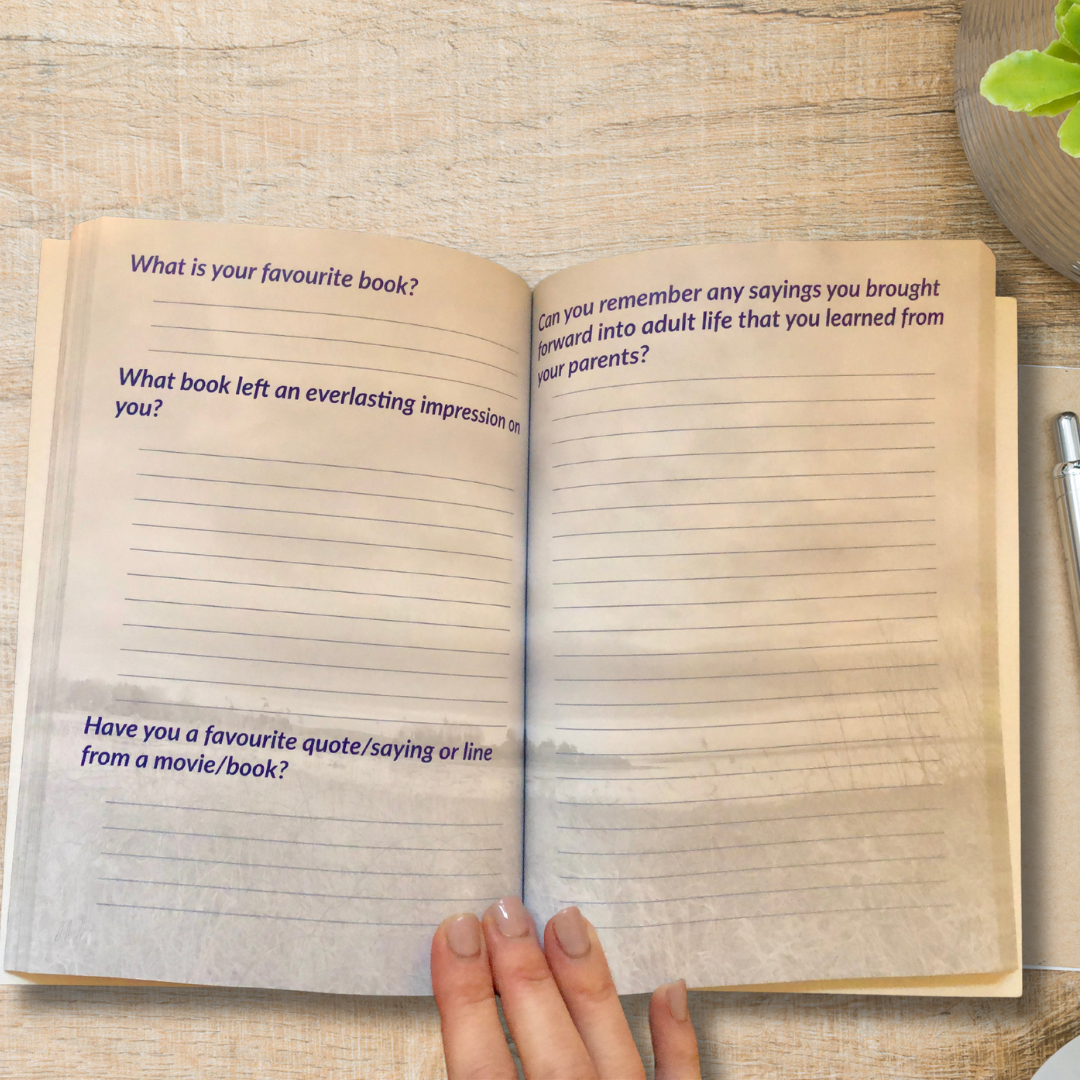 What is your favourite book?
What book left an everlasting impression on
you?
Have you a favourite quote/saying or line
from a movie/book?
Can you remember any sayings you brought
forward into adult life that you learned from
your parents?